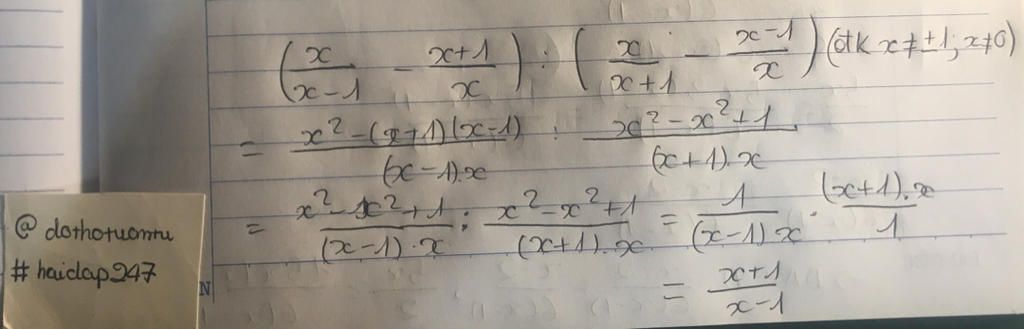 (x/(x-1) - (x+1)/x) : (x/(x+1) - (x-1)/x) (đk x≠±1; x≠0)
= (x²-(x+1)(x-1))/((x-1).x) : (x²-x²+1)/((x+1).x)
= (x²-x²+1)/((x-1).x) : (x²-x²+1)/((x+1).x) = 1/((x-1).x) . ((x+1).x)/1
= (x+1)/(x-1)
@dothotuomtu
#haidap247
N